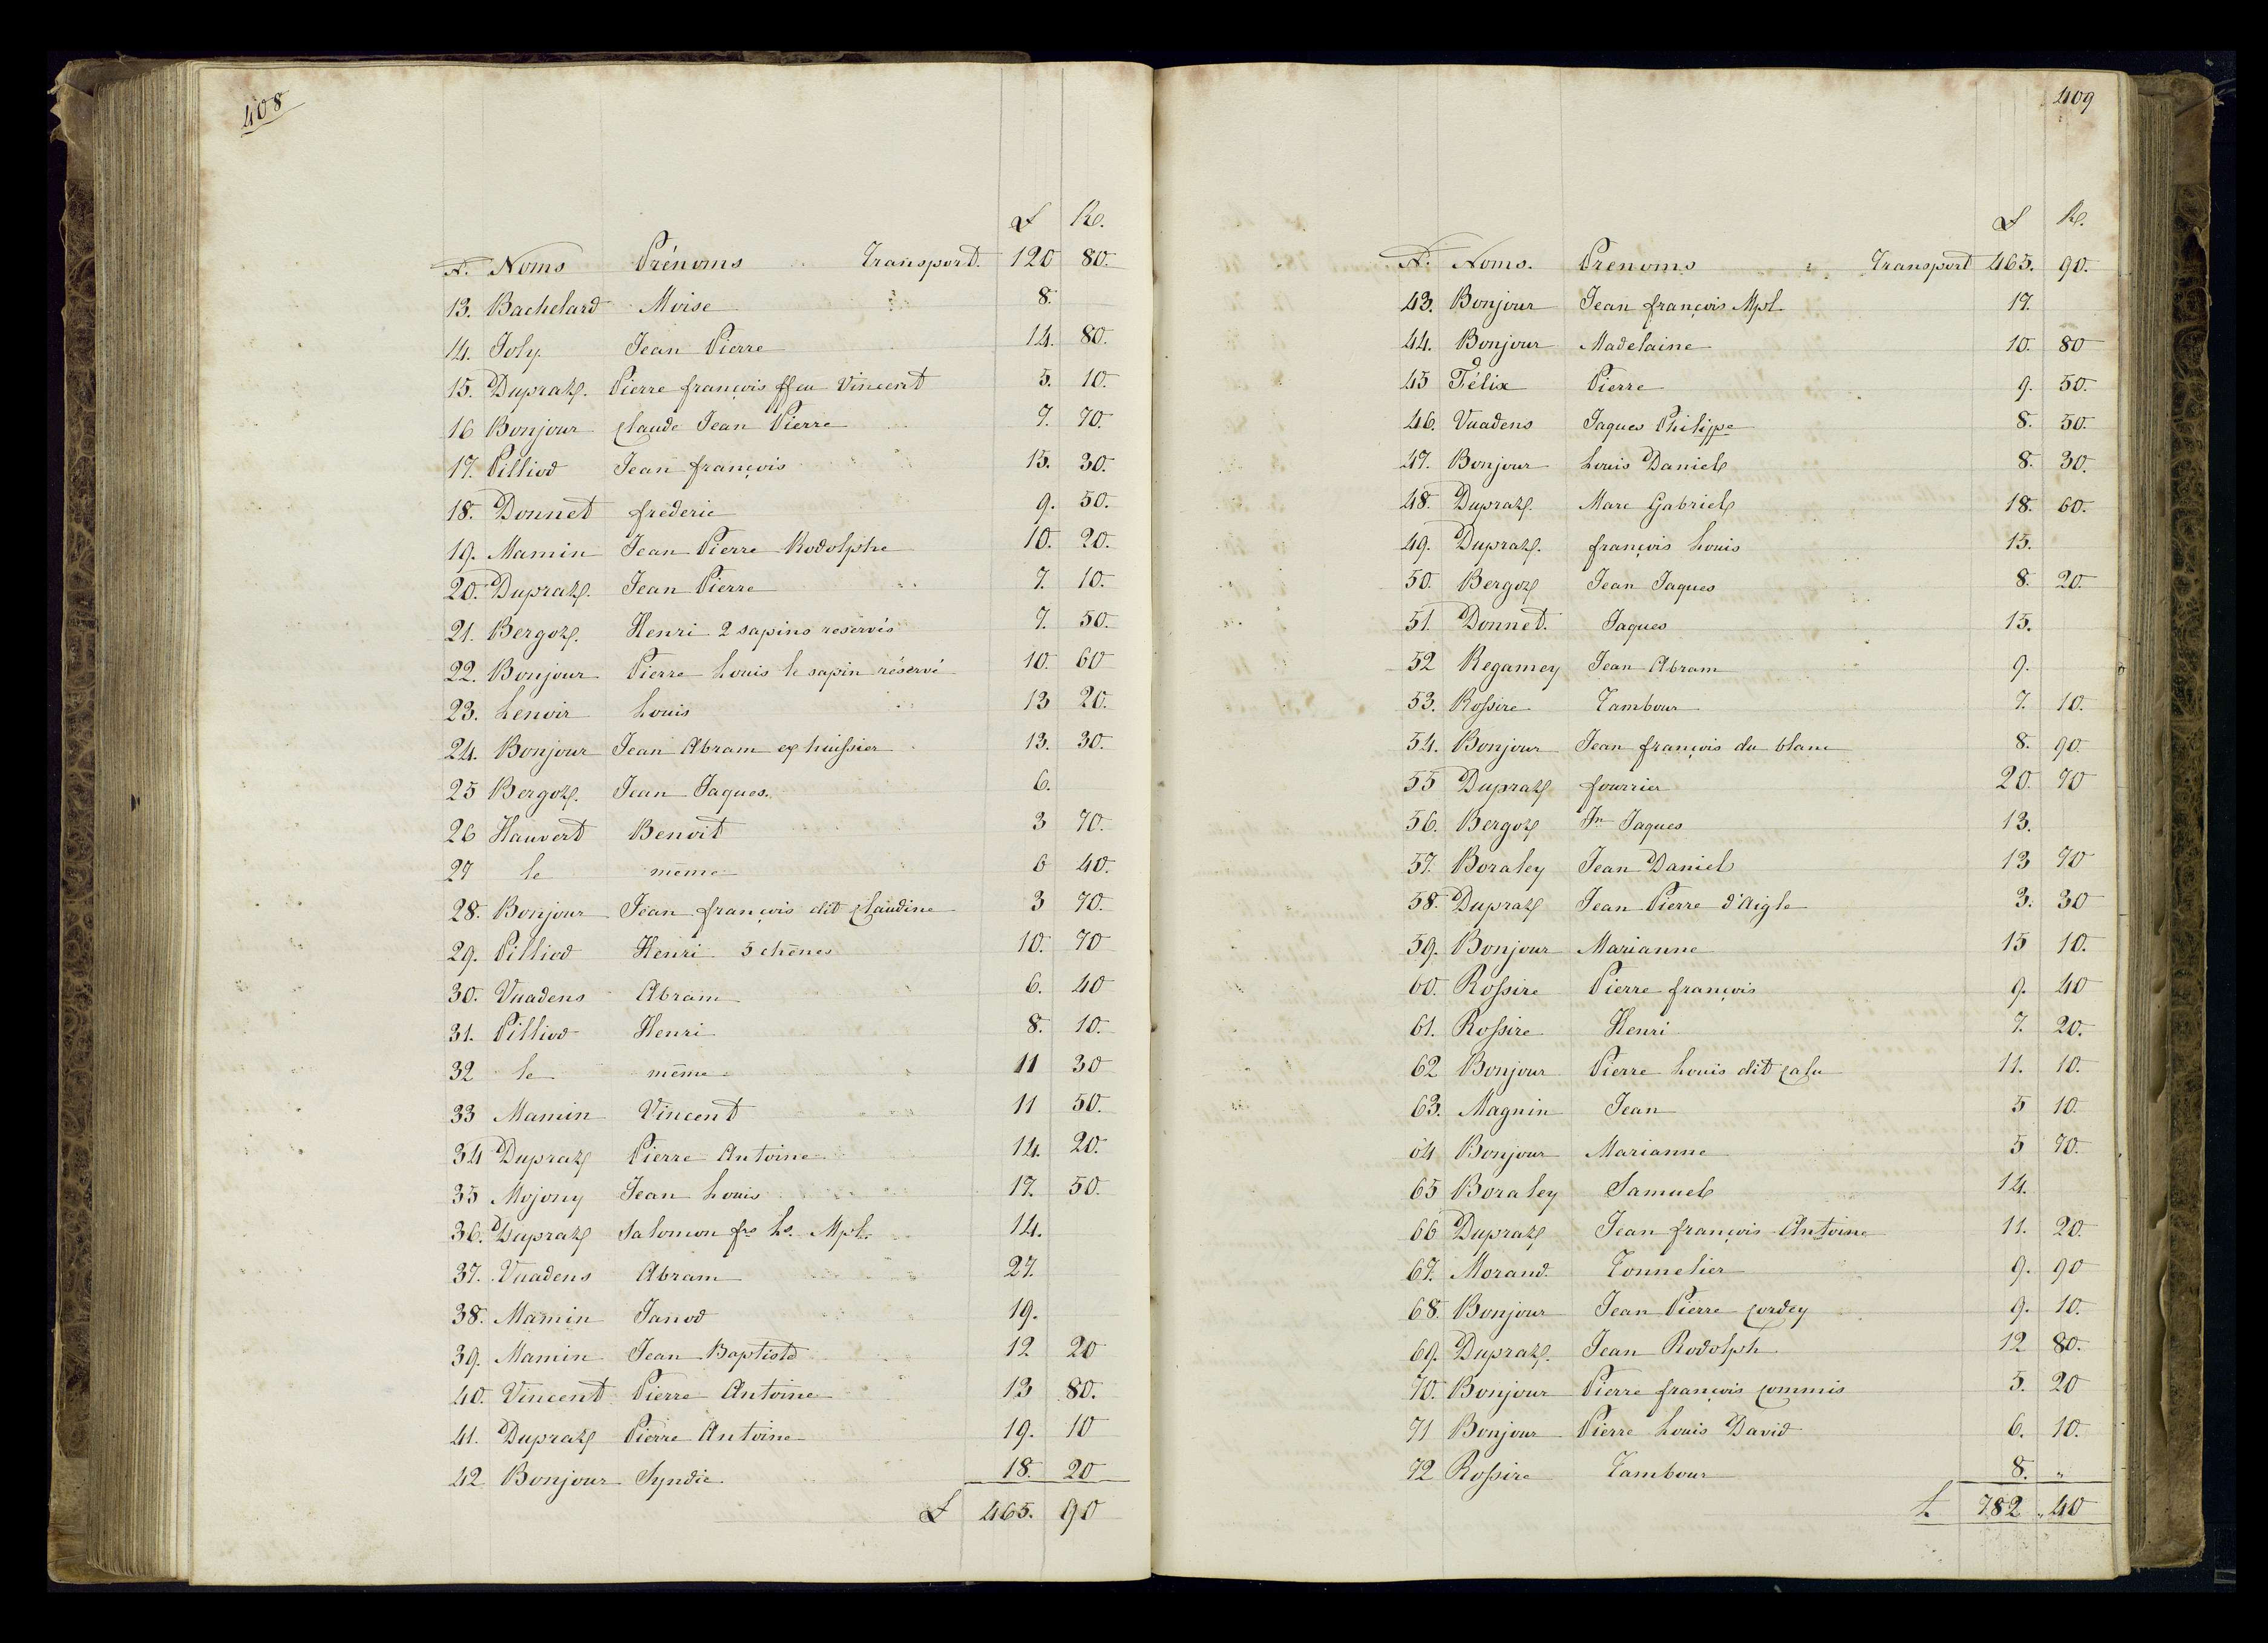 408
£ Rp.
N. Noms Prénoms Transport. 120 80.
13. Bachelard Moise 8.
14. Joly Jean Pierre 14. 80.
15. Dupraz. Pierre françois ffeu Vincent 5. 10.
16 Bonjour Claude Jean Pierre 7. 70.
17. Pilliod Jean françois 15. 30.
18. Donnet fréderic 9. 50.
19. Mamin Jean Pierre Rodolphe 10. 20.
20. Dupraz. Jean Pierre 7. 10.
21. Bergoz. Henri 2 sapins reservés 7. 50.
22. Bonjour Pierre Louis le sapin réservé 10. 60
23. Lenoir Louis 13 20.
24. Bonjour Jean Abram ex huissier 13. 30.
25 Bergoz. Jean Jaques. 6.
26 Hauvert Benoit 3 70.
27 le même 6 40.
28. Bonjour Jean françois dit Claudine 3 70.
29. Pilliod Henri 5 chênes 10. 70
30. Vuadens Abram 6. 40
31. Pilliod Henri 8. 10.
32 le même 11 30
33 Mamin Vincent 11 50.
34 Dupraz Pierre Antoine 14. 20.
35 Mojony Jean Louis 17. 50.
36. Dupraz Salomon frs Ls. Mpl. 14.
37. Vuadens Abram 27.
38. Mamin Janod 19.
39. Mamin Jean Baptiste 12 20
40. Vincent Pierre Antoine 13 80.
41. Dupraz Pierre Antoine 19. 10
42 Bonjour Syndic 18. 20
£ 465. 90
409
£ Rp.
N. Noms. Prénoms Transport 465. 90.
43. Bonjour Jean françois Mpl. 17.
44. Bonjour Madelaine 10. 80
45 Félix Pierre 9. 50.
46. Vuadens Jaques Philippe 8. 50.
47. Bonjour Louis Daniel 8. 30.
48. Dupraz Marc Gabriel 18. 60.
49. Dupraz. françois Louis 15.
50. Bergoz Jean Jaques 8. 20.
51. Donnet. Jaques 15.
52 Regamey Jean Abram 9.
53. Rossire Tambour 7. 10.
54. Bonjour Jean françois du blanc 8. 90.
55 Dupraz fourrier 20. 70
56. Bergoz Jn Jaques 13.
57. Boraley Jean Daniel 13 70
58. Dupraz Jean Pierre d'Aigle 3. 30
59. Bonjour Marianne 15 10.
60. Rossire Pierre françois 9. 40
61. Rossire Henri 7. 20.
62 Bonjour Pierre Louis dit 11. 10.
63. Magnin Jean 5 10.
64 Bonjour Marianne 5 70.
65 Boraley Samuel 14.
66 Dupraz Jean françois Antoine 11. 20.
67. Morand. Tonnelier 9. 90
68. Bonjour Jean Pierre Cordey 9. 10.
69. Dupraz. Jean Rodolph 12 80.
70. Bonjour Pierre françois Commis 5. 20
71 Bonjour Pierre Louis David 6. 10.
72 Rossire Tambour 8. "
£. 782 " 40